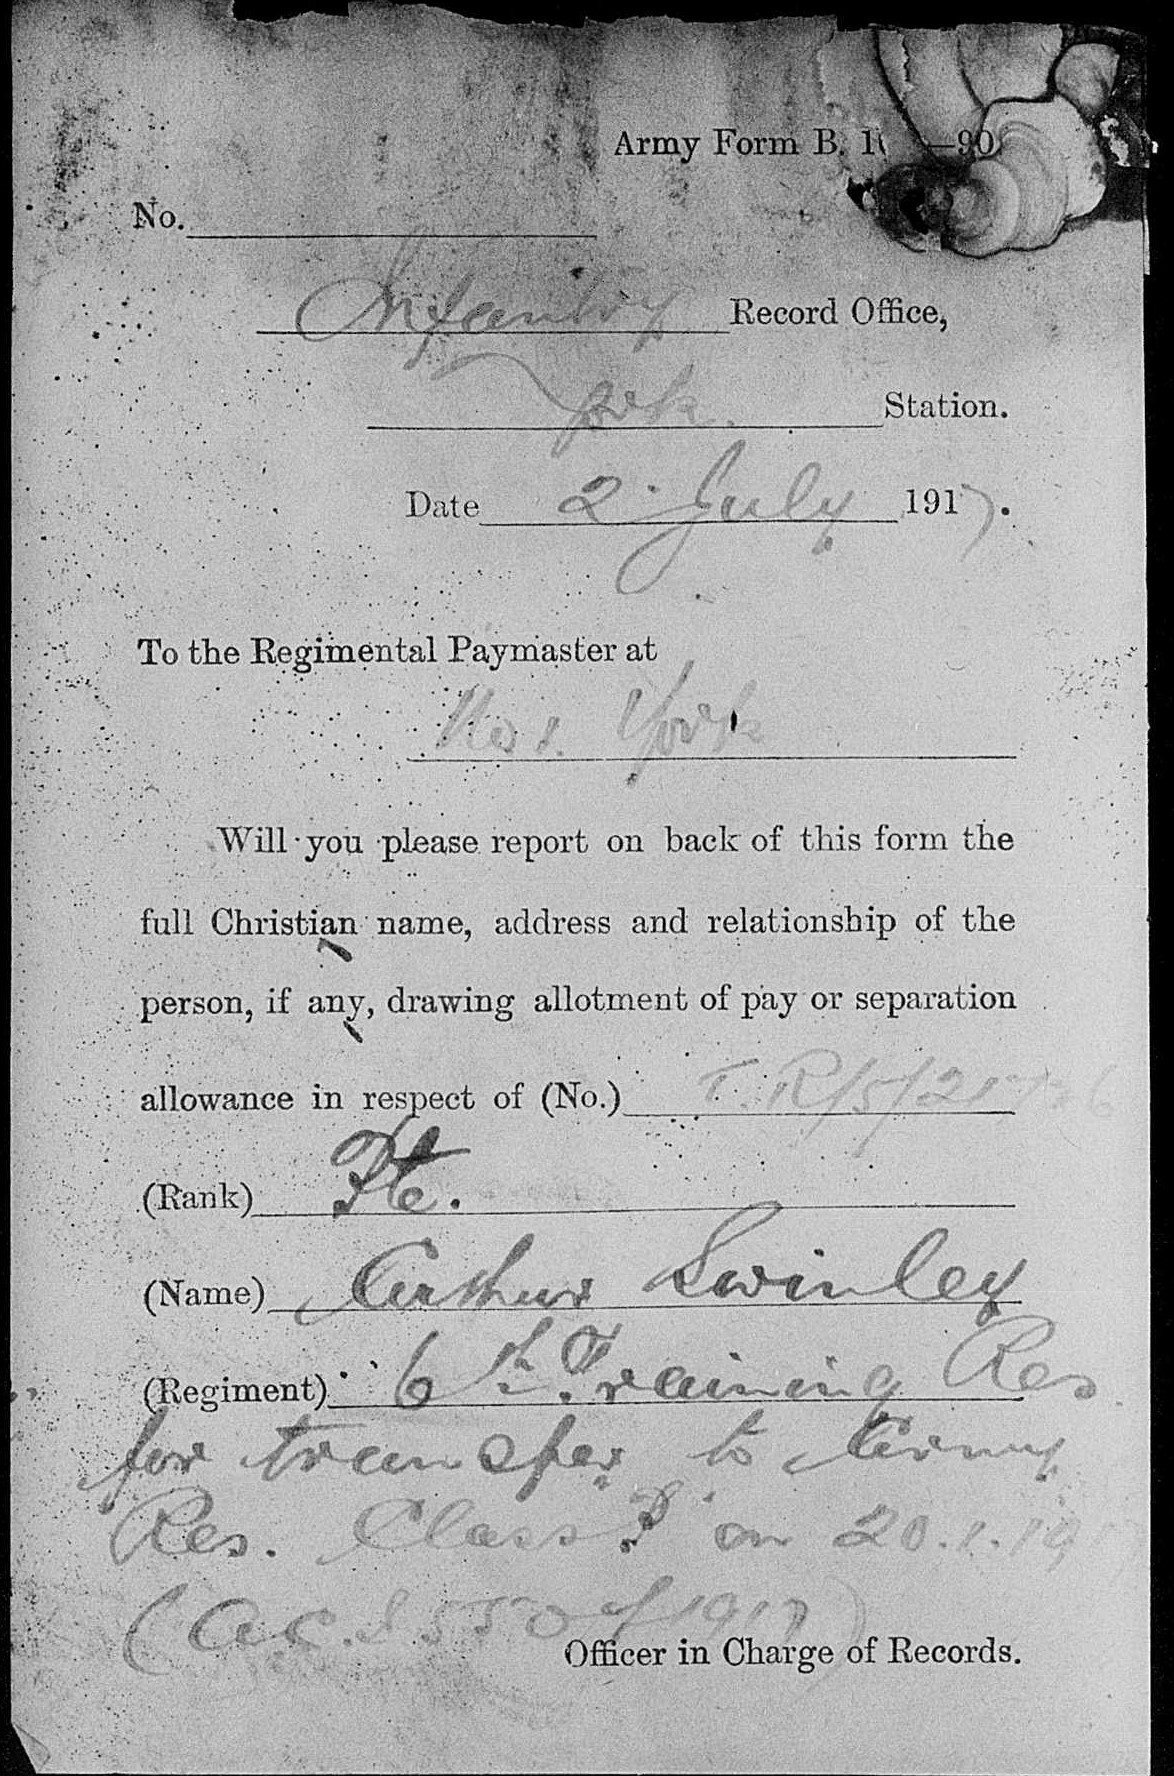 Army Form B. 1 —90
No.
Infantry Record Office,
York. Station.
Date 2 July 1917.
To the Regimental Paymaster at
No 1. York
Will you please report on back of this form the
full Christian name, address and relationship of the
person, if any, drawing allotment of pay or separation
allowance in respect of (No.) T.R/5/21
(Rank) Pte.
(Name) Arthur Swinley
(Regiment) 6th Training Res
for transfer to Army
Res. Class P on 20.1.19
(A.C.I 550 of 1917)
Officer in Charge of Records.